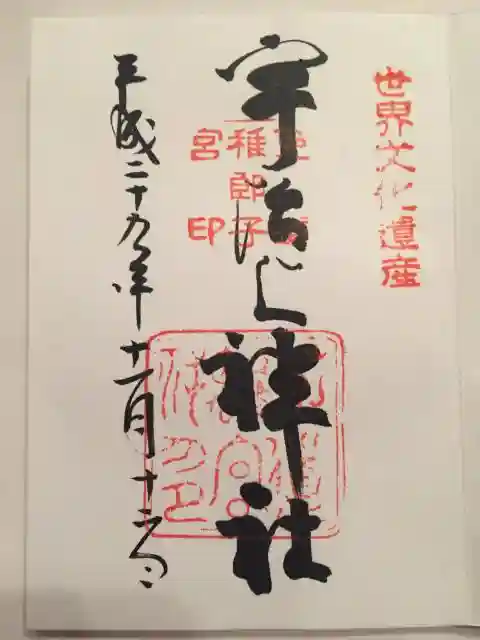 世界文化遺産
宇治上神社
稚郎子
宮印
平成二十九年十一月十二日